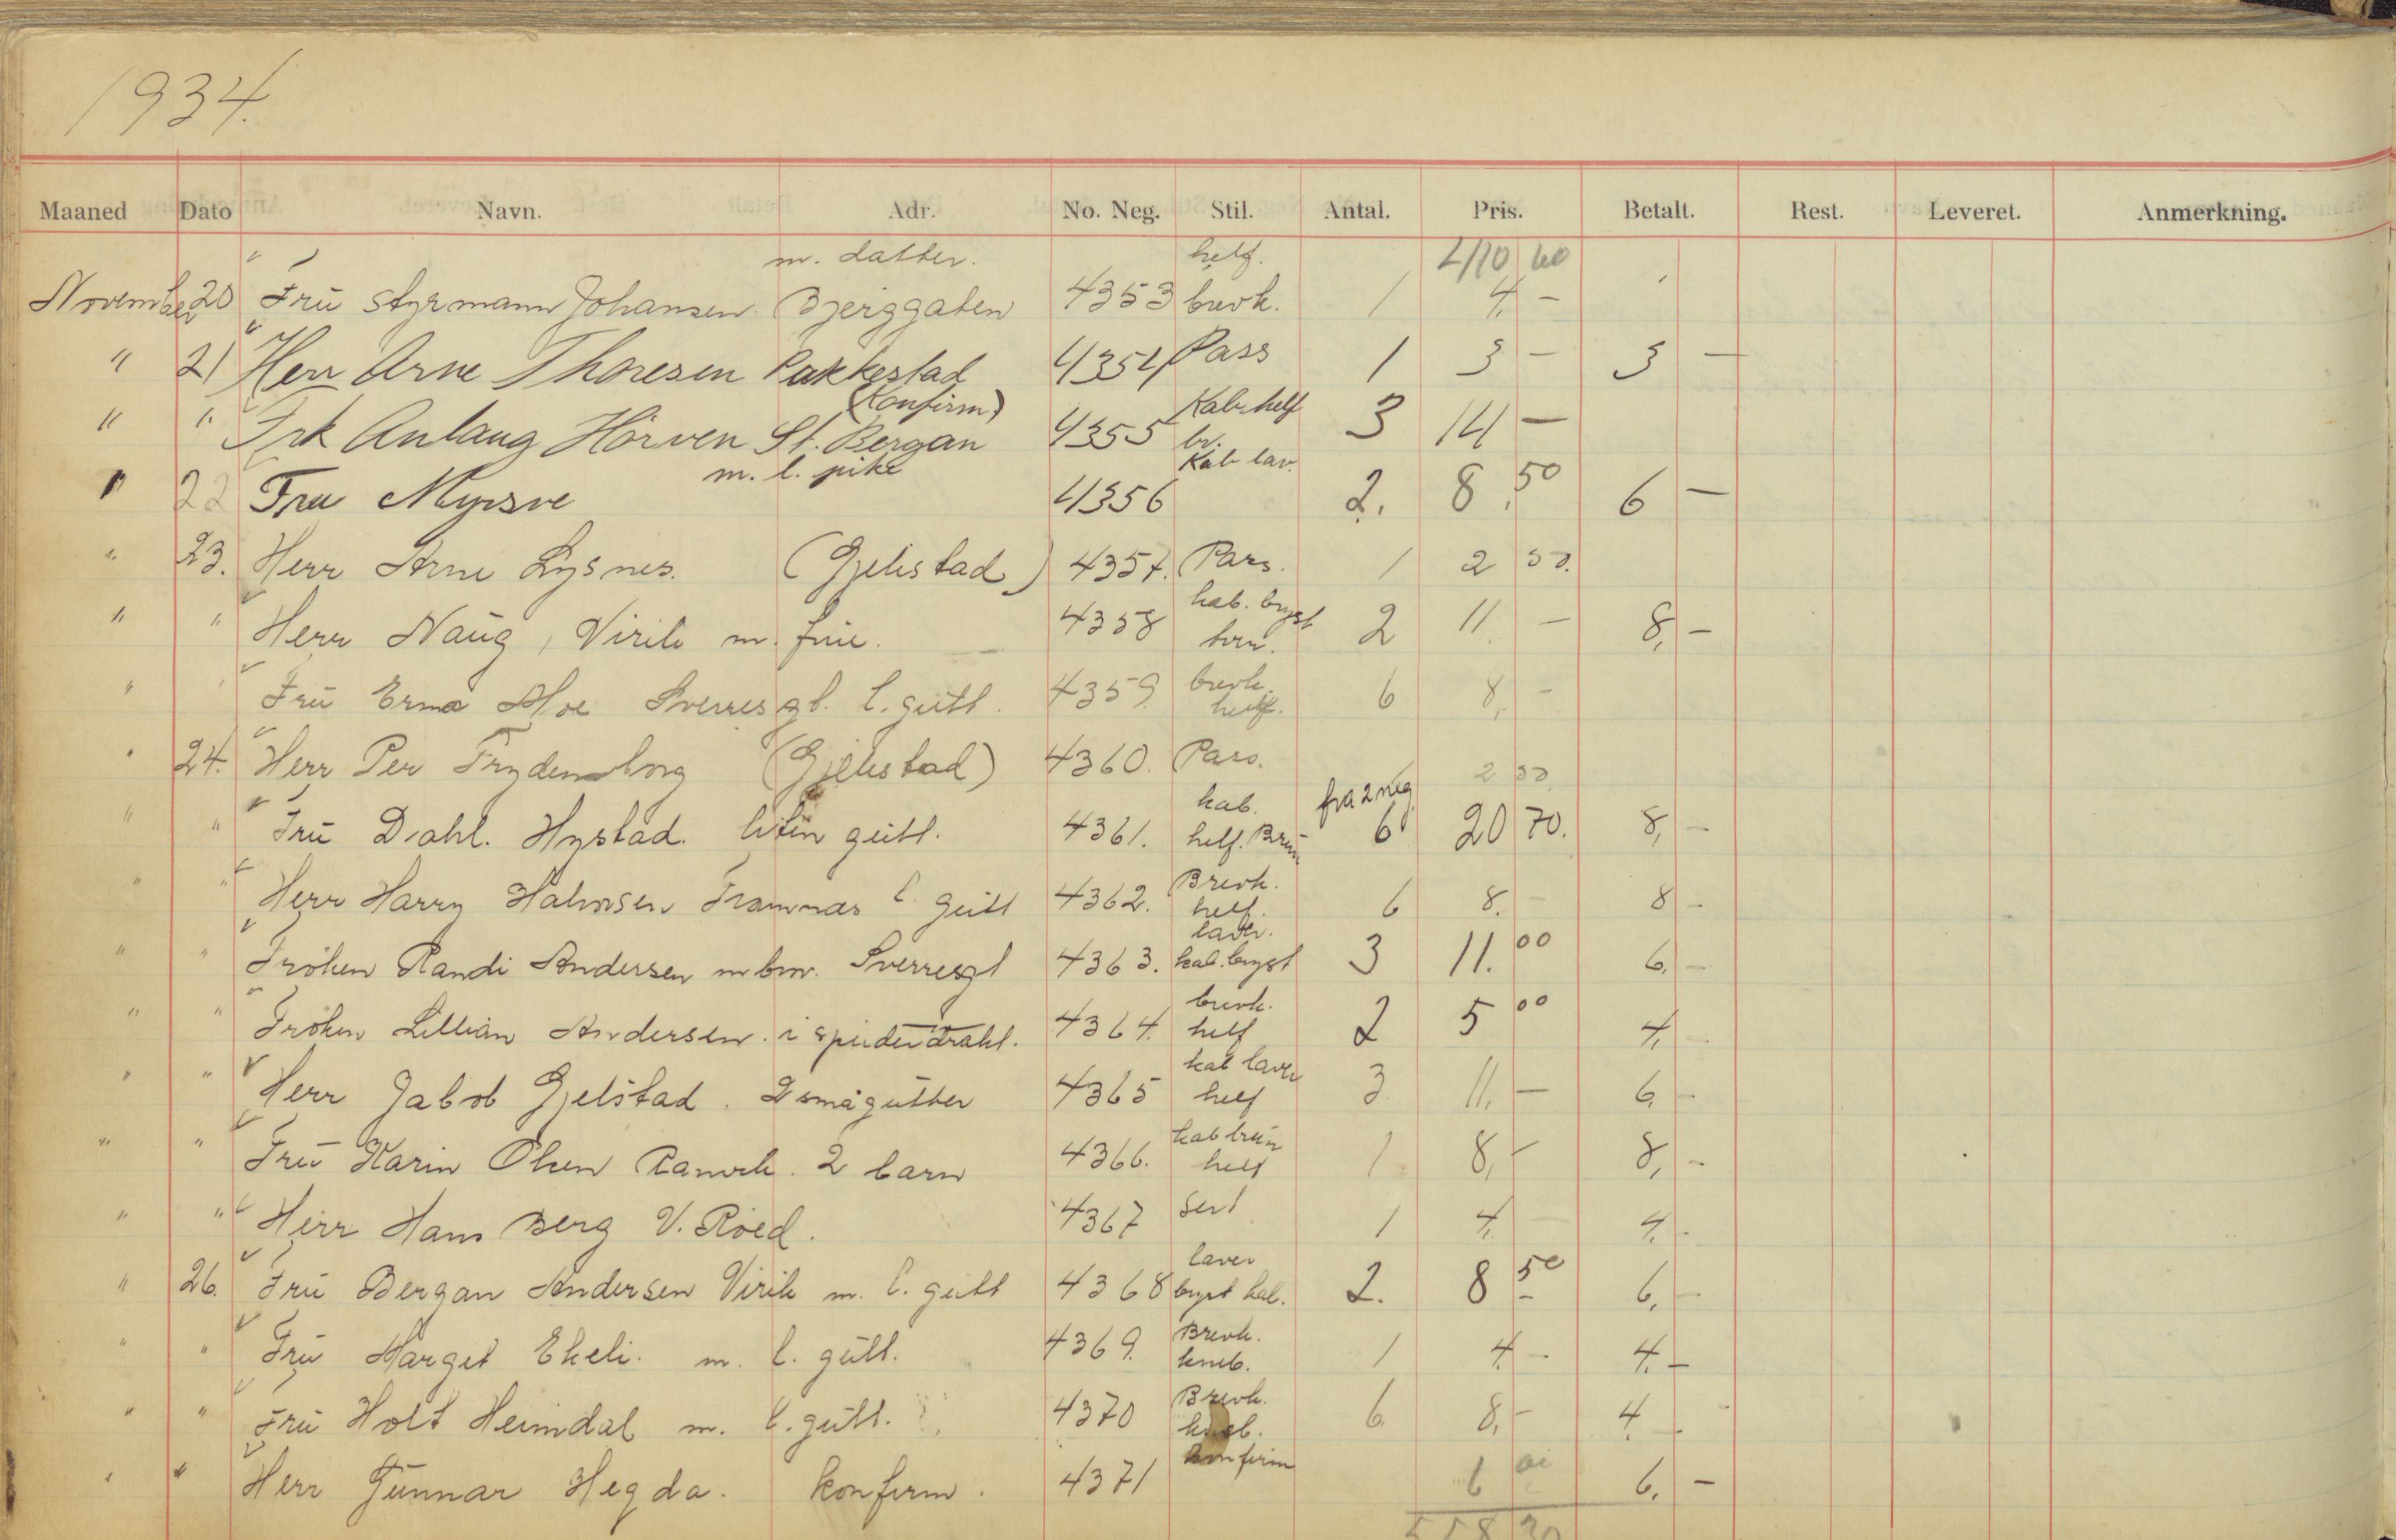 1934.
Maaned Dato Navn. Adr. No. Neg. Stil. Antal. Pris. Betalt. Rest. Leveret. Anmerkning.
m. datter. helf. 410 60
November 20 Frü Styrmann Johansen Bjerggaten 4353 brevk. 1 4,-
" 21 Herr Arne Thoresen Pukkestad 4354 Pass 1 3 - 3 -
(Konfirm) Kab. helf
" " Frk Anlaug Hörven St. Bergan 4355 br. 3 14 -
m. l. pike Kab lav.
" 22 Fru Myrsve 4356 2. 8,50 6 -
" 23. Herr Arne Lysnes. (Gjelstad) 4357. Pass. 1 2 50.
kab. bryst
" " Herr Naüg, Virik m. früe. 4358 brün. 2 11 - 8,-
" " Frü Erna Moe Sverresgt. l. gütt. 4359 brevk. helf. 6 8,-
" 24. Herr Per Frydenborg (Gjelstad) 4360. Pass. 2 50
kab. fra 2 neg
" " Frü Dahl. Hystad. liten gütt. 4361. helf. Brün 6 20 70. 8,-
Brevk.
" " Herr Harry Halvorsen Framnæs l. gütt 4362. helf. 6 8.- 8 -
laver.
" " Fröken Randi Andersen m bror. Sverresgt 4363. kab. bryst 3 11.00 6,-
brevk.
" " Fröken Lillian Andersen. i speiderdrakt. 4364. helf 2 5 00 4,
kab laver
" " Herr Jakob Gjelstad. 2 smågütter 4365 helf 3. 11,- 6,-
kab brün
" " Frü Karin Olsen Ranvik. 2 barn 4366. helf 1 8,- 8,-
" " Herr Hans Berg V. Röed. 4367 Sert 1 4,- 4,-
laver
" 26. Frü Bergan Andersen Virik m. l. gütt 4368 bryst kab. 2. 8 50 6,-
Brevk.
" " Frü Margit Ekeli. m. l. gütt. 4369. kneb. 1 4,- 4.-
Brevk.
" " Frü Holt Heimdal m. l. gütt. 4370 kneb. 6 8,- 4.-
konfirm
" " Herr Günnar Hegda. konfirm. 4371 6 6,-